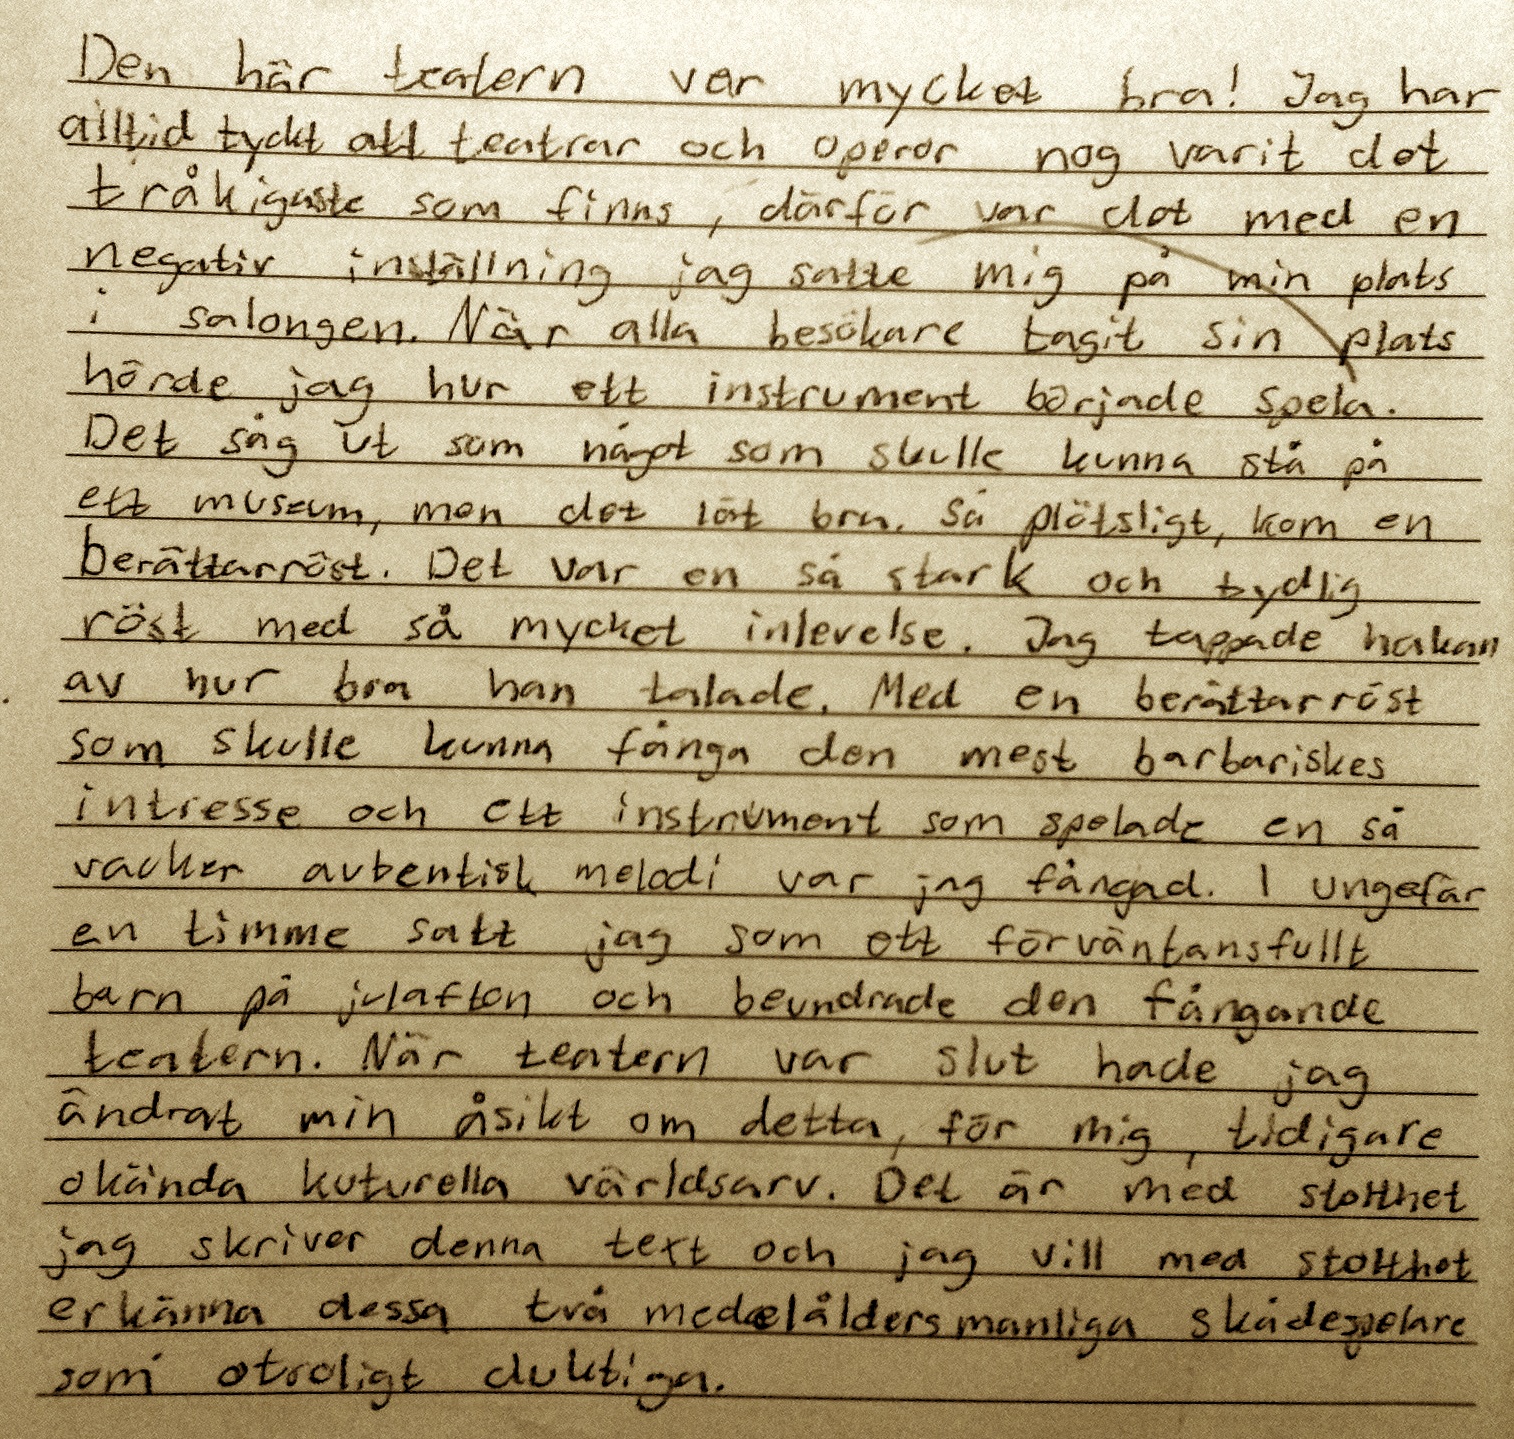 Den här teatern var mycket bra! Jag har
alltid tyckt att teatrar och operor nog varit det
tråkigaste som finns, därför var det med en
negativ inställning jag satte mig på min plats
i salongen. När alla besökare tagit sin plats
hörde jag hur ett instrument började spela.
Det såg ut som något som skulle kunna stå på
ett museum, men det lät bra. Så plötsligt, kom en
berättarröst. Det var en så stark och tydlig
röst med så mycket inlevelse. Jag tappade hakan
av hur bra han talade. Med en berättarröst
som skulle kunna fånga den mest barbariskes
intresse och ett instrument som spelade en så
vacker autentisk melodi var jag fångad. I ungefär
en timme satt jag som ett förväntansfullt
barn på julafton och beundrade den fångande
teatern. När teatern var slut hade jag
ändrat min åsikt om detta, för mig, tidigare
okända kuturella världsarv. Det är med stolthet
jag skriver denna text och jag vill med stolthet
erkänna dessa två medelålders manliga skådespelare
som otroligt duktiga.